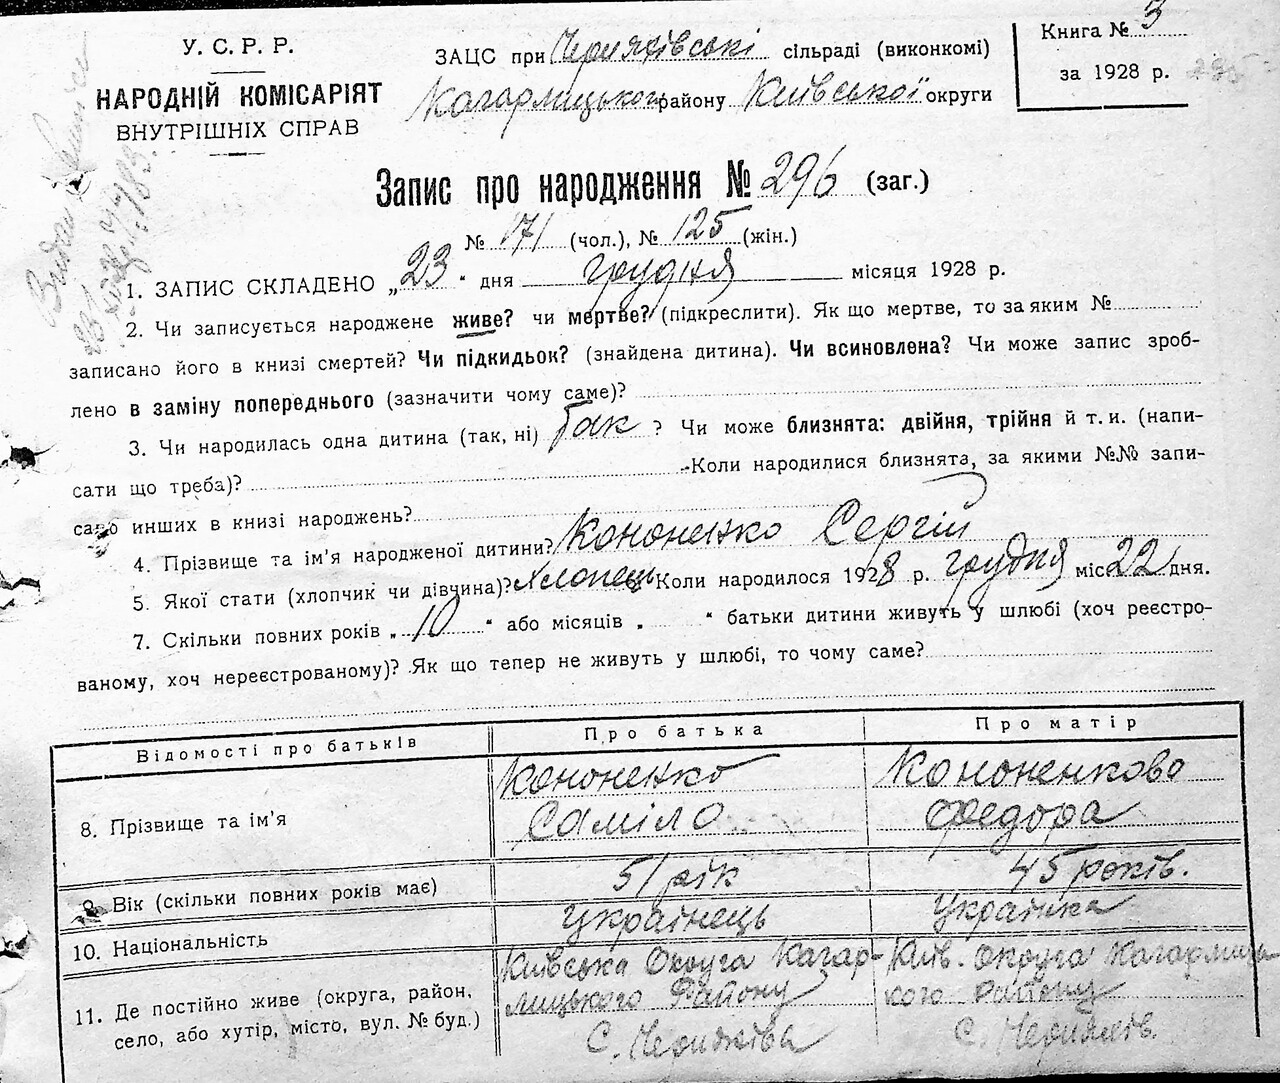 У. С. Р. Р.
НАРОДНІЙ КОМІСАРІЯТ
ВНУТРІШНІХ СПРАВ
ЗАЦС при Черняхівські сільраді (виконкомі)
Кагарлицького району Київської округи
Книга № 3
за 1928 р. 295
Видан
Запис про народження № 296 (заг.)
№ 171 (чол.), № 125 (жін.)
1. ЗАПИС СКЛАДЕНО „23“ дня грудня місяця 1928 р.
2. Чи записується народжене живе? чи мертве? (підкреслити). Як що мертве, то за яким №
записано його в книзі смертей? Чи підкидьок? (знайдена дитина). Чи всиновлена? Чи може запис зроб-
лено в заміну попереднього (зазначити чому саме)?
3. Чи народилась одна дитина (так, ні) Так ? Чи може близнята: двійня, трійня й т. и. (напи-
сати що треба)? Коли народилися близнята, за якими №№ запи-
сано инших в книзі народжень?
4. Прізвище та ім'я народженої дитини? Кононенко Сергій
5. Якої стати (хлопчик чи дівчина)? Хлопець 6. Коли народилося 1928 р. грудня міс. 22 дня.
7. Скільки повних років „10“ або місяців „ “ батьки дитини живуть у шлюбі (хоч реєстро-
ваному, хоч нереєстрованому)? Як що тепер не живуть у шлюбі, то чому саме?
Відомості про батьків Про батька Про матір
8. Прізвище та ім'я Кононенко Саміло Кононенково Федора
9. Вік (скільки повних років має) 51 рік 45 років.
10. Національність Українець Українка
11. Де постійно живе (округа, район,
село, або хутір, місто, вул. № буд.)
Київська Округа Кагар-
лицького Району
С. Черняхів
Київ. Округа Кагарлиць
кого Району
С. Черняхів.